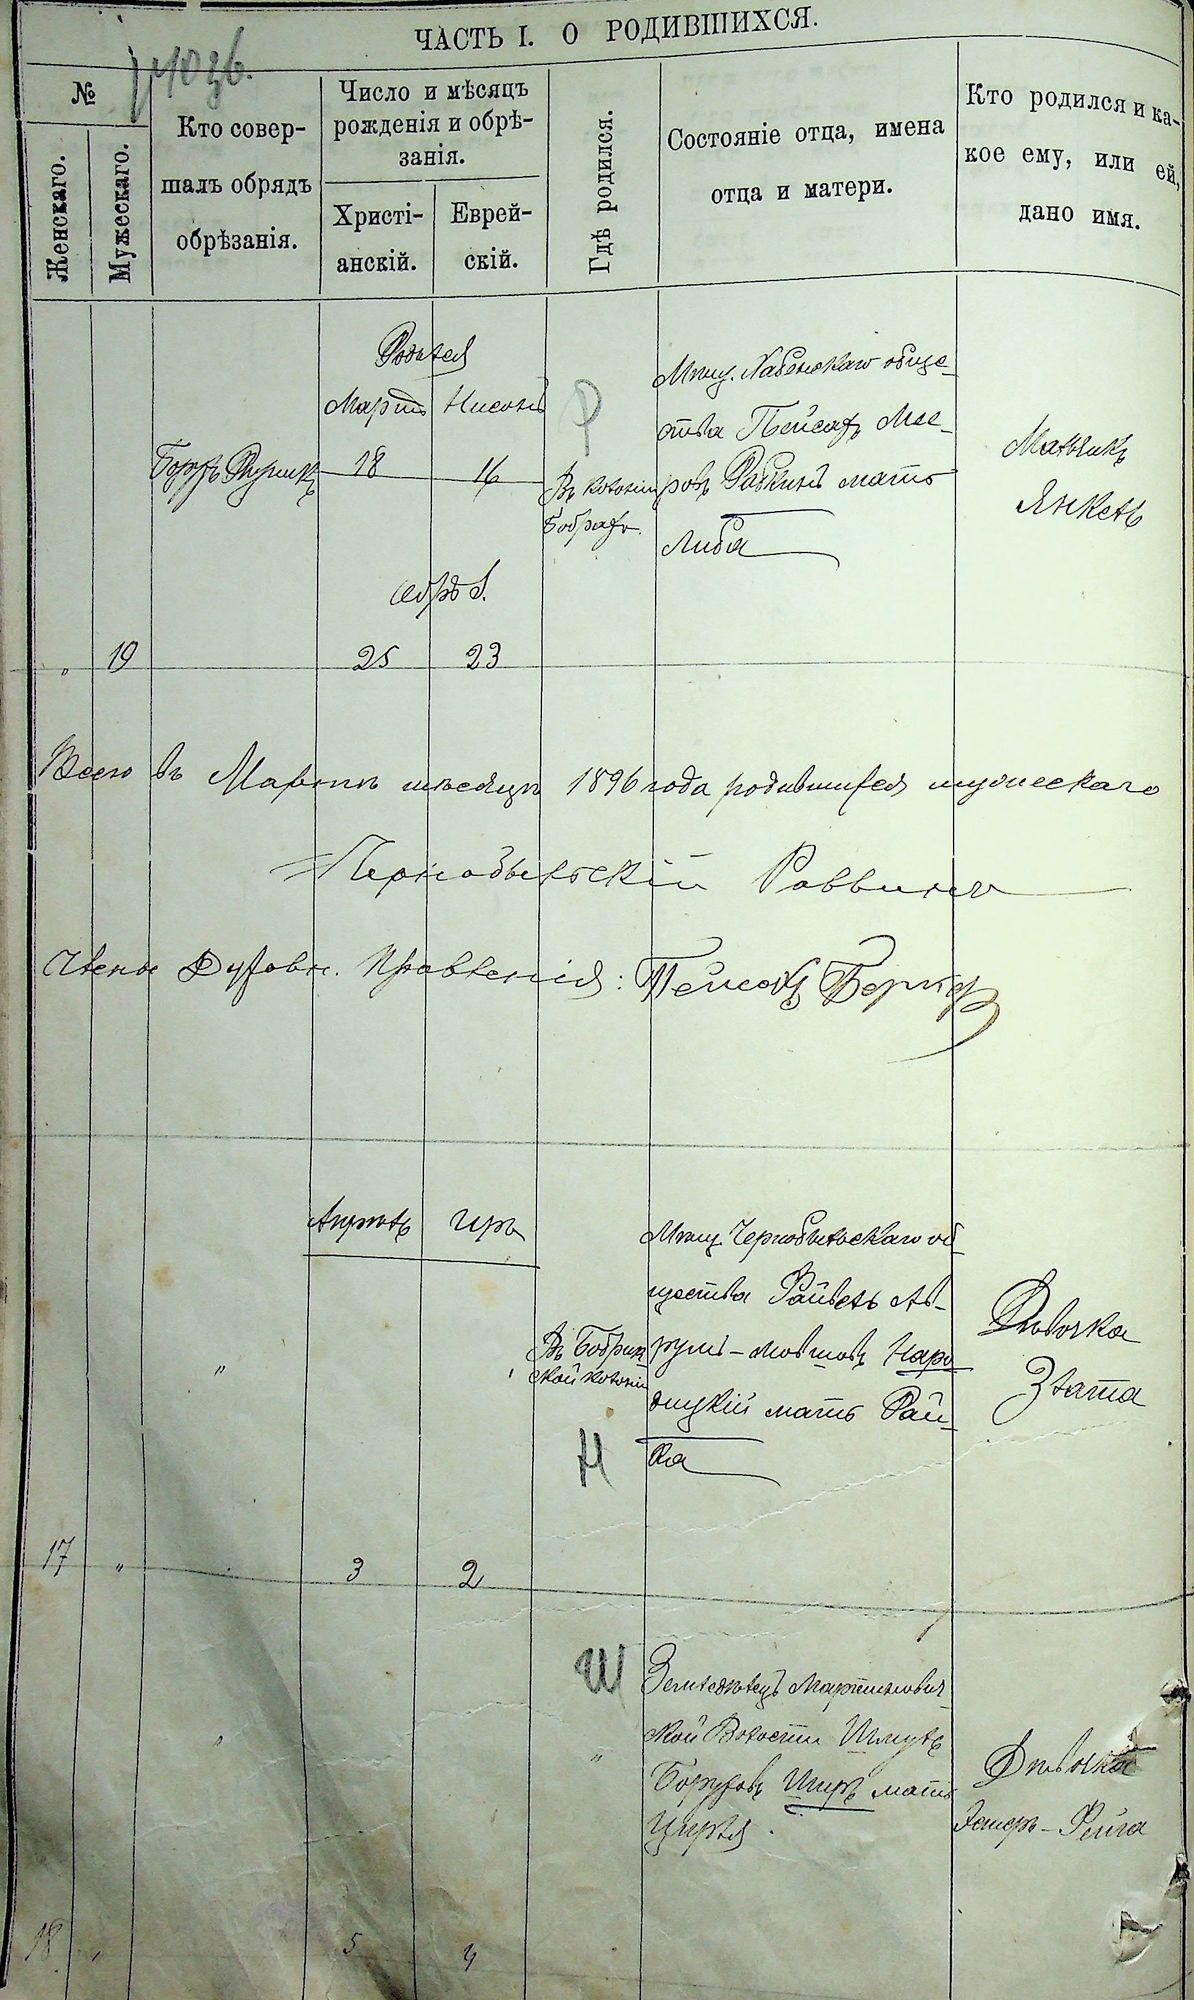 ЧАСТЬ I. О РОДИВШИХСЯ.
№
Женскаго.
Мужескаго.
Кто совер-
шалъ обрядъ
обрѣзанія.
Число и мѣсяцъ
рожденія и обрѣ-
занія.
Христі-
анскій.
Еврей-
скій.
Гдѣ родился.
Состояніе отца, имена
отца и матери.
Кто родился и ка-
кое ему, или ей,
дано имя.
Родился
Мартъ
Нисонъ
18
16
обрѣз.
" 19
25
23
Р
Въ колоніи
Бобрахъ.
Мѣщ. Хабенскаго обще-
ства Пейсахъ Мее-
ровъ Рабкинъ мать
Либа
Мальчикъ
Янкель
Всего въ Мартѣ мѣсяцѣ 1896 года родившихся мужескаго
Чернобыльскій Раввинъ
Члены Духовн. Правленія: Пейсахъ
Апрѣль
Иръ
"
Въ Бобриц
ской колоніи
Н
Мѣщ. Чернобыльскаго об-
щества Файвель Ав-
румъ-Мовшовъ Наро
дицкій мать Рай-
ка
Дѣвочка
Злата
17 "
3
2
"
Ш
"
Земледѣлецъ Мартинович-
ской Волости Шмуль
Боруховъ Ширъ мать
Цирля.
Дѣвочка
Эстеръ-Фейга
18 "
5
4